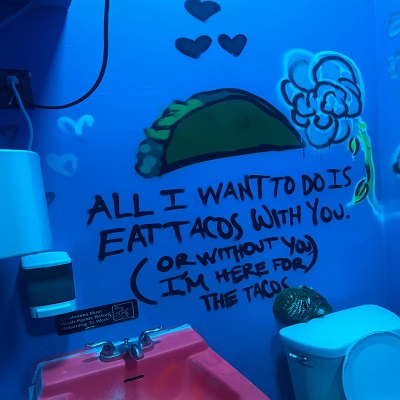 ALL I WANT TO DO IS
EAT TACOS WITH YOU.
(OR WITHOUT YOU
I'M HERE FOR)
THE TACOS
Employees Must
Wash Hands Before
Returning To Work